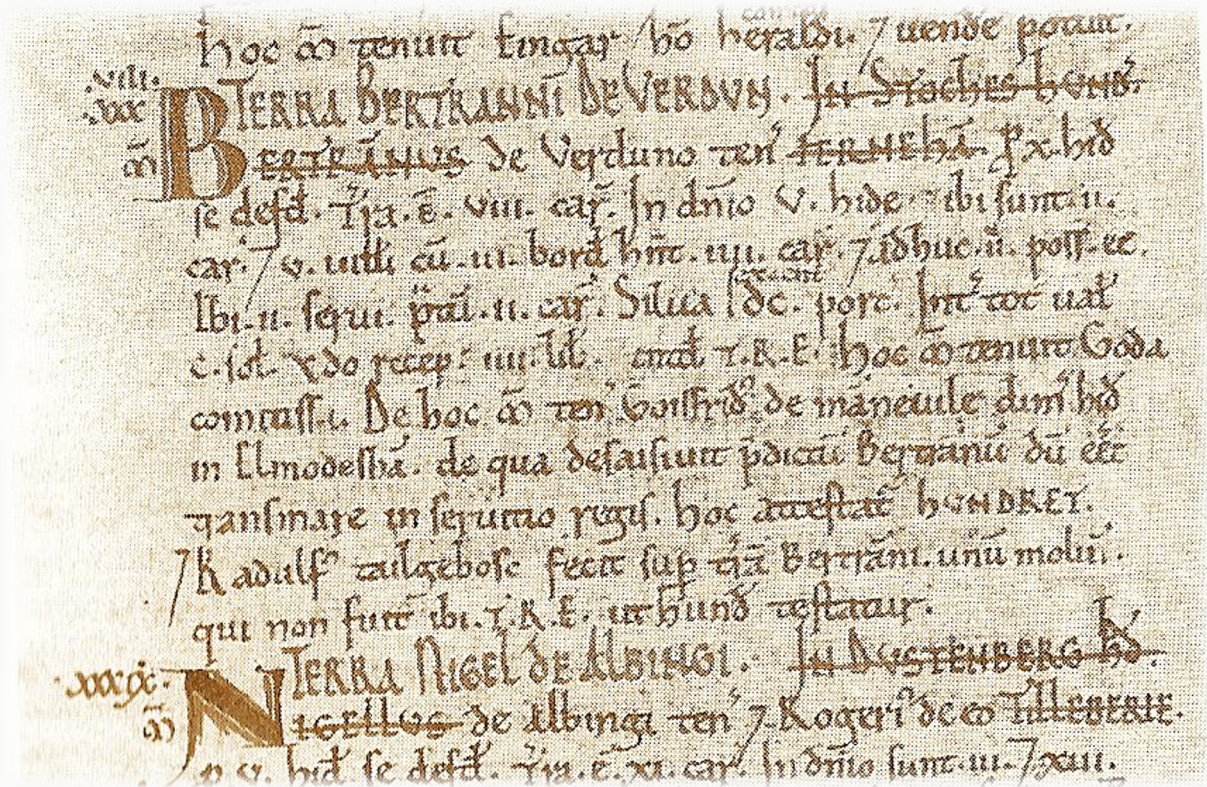 hoc m̄ tenuit Eingar hō heraldi. ⁊ uende potuit.
TERRA BERTRANNI DE VERDUN. IN STOCHES HUND.
m̄ BERTRANUS de Verduno ten' FERNEHĀ. P x. hid
se defd̄. T'ra. ē. viii. car'. In dn̄io v. hide ⁊ ibi sunt. ii.
car'. ⁊ v. uilli cū. iii. bord hn̄t. iiii. car'. ⁊ adhuc. ii. poss' ee.
Ibi. ii. serui. p̄tal. ii. car'. Silua dc. porc'. Int' tot' ual'
c. sol'. Qdo recep' iiii. lib'. T.R.E. Hoc m̄ tenuit Goda
comitiss.a. De hoc m̄ ten' Goisfrid' de maneuile dim' hid
in Elmodeshā. de qua desaisiuit p̄dictū Bertranū dū eēt
transmare in seruitio regis. hoc attestat' HUNDRET.
⁊ Radulf' tailgebosc fecit sup' t'rā Bertrani. unū molin'.
qui non fuit ibi. T.R.E. ut hund' testatur.
xxxix. TERRA NIGEL DE ALBINGI. IN DUSTENBERG HD.
m̄ NIGELLUS de Albingi ten' ⁊ Roger' de eo TILLEBERIE.
p v. hid' se defd̄. T'ra. ē. xi. car'. In dn̄io sunt. iii. ⁊ xiii.